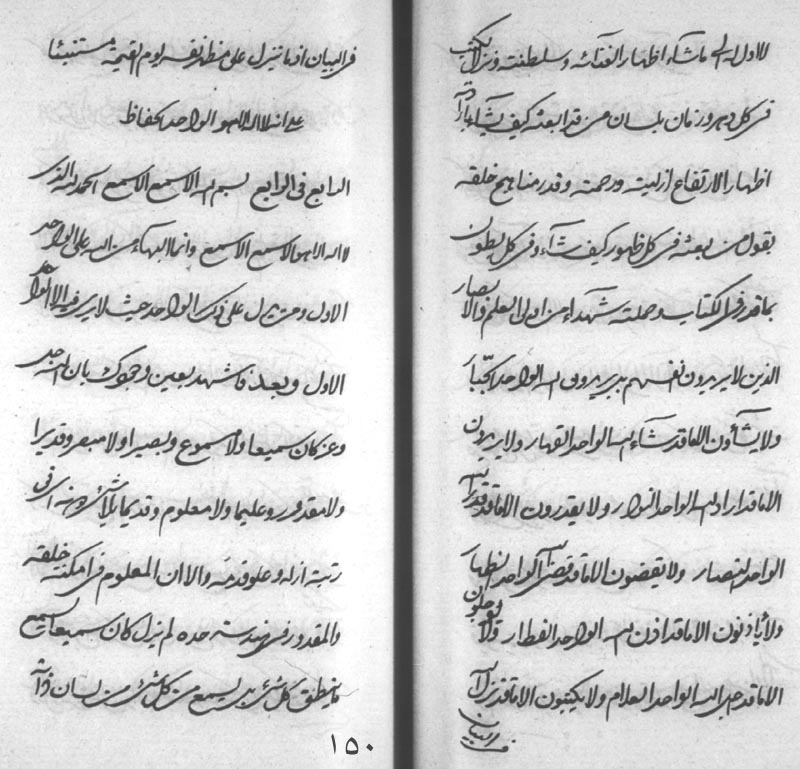 الاول له الى ماشاء اظهار الغنائه وسلطنته ونزل الكتب
فى كل دهر وزمان بلسان من قد ابعثه كيف يشاء بارادته
اظهار الارتفاع ازليته ورحمته وقدر مناهج خلقه
بقول من بعثه فى كل ظهور كيف شاء وفى كل بطون
بما قدر فى الكتاب وجعلته شهداء من اولى العلم والابصار
الذين لا يريدون نفسهم بل يريدون الله الواحد
ولا يشاؤن الا ما قد شاء الله الواحد القهار ولا يريدون
الا ما قد اراد الله الواحد النوار ولا يقدرون الا ما قد قدر الله
الواحد النصار ولا يقضون الا ما قد قضى الله الواحد الظهار
ولا يأذنون الا ما قد اذن الله الواحد الفطار ولا يؤجلون
الا ما قد اجل الله الواحد العلام ولا يكتبون الا ما قد نزل الله
فى البيان
فى البيان او ما تنزل على من يظهر نفسه يوم القيمة مستنبئا
على انه لا اله الا هو الواحد الحفاظ
الرابع فى الرابع بسم الله الاسمع الاسمع الحمد لله الذى
لا اله الا هو الاسمع الاسمع وانما البهاء من الله على الواحد
الاول ومن يشابه ذلك الواحد حيث لا يرى فيه الا الواحد
الاول وبعد فاشهد بعين وجودك بان الله جل
وعز كان سميعا ولا مسموع وبصيرا ولا مبصر وقديرا
ولا مقدور وعليما ولا معلوم وقديما بلا شىء وانه فى
رتبة ازله وعلو قدمه والا ان المعلوم فى امكنة خلقه
والمقدور فى هندسة حده لم يزل كان سميعا يسمع
ما ينطق كل شىء بل يسمع من كل شىء من لسان ذاته
١٥٠